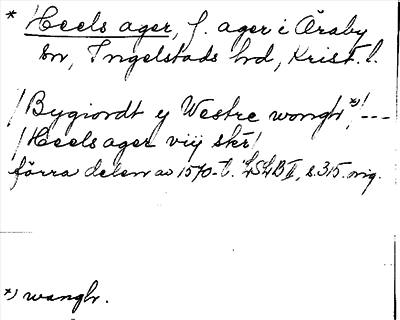 * Heels ager, f. ager i Äraby
sn, Ingelstads hd, Krist. l.
/Bygiordt y Westre wongh*)/ ---
/Heels ager viij skr/
förra delen av 1570-t. LSLB II, s. 315. mg.
*) wangh.